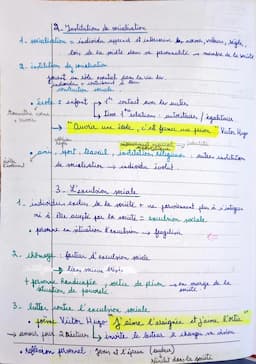 2. Institutions de socialisation
1. socialisation = individu apprend et intériorise les normes, valeurs, règles,
lois de la société dans sa personnalité → membre de la société
2. institution de socialisation
jouent un rôle essentiel dans la vie des
individus + contribuent à leur
construction sociale.
école : enfant → 1er contact avec les autres
→ lieu 1ère relations : autoritaires / égalitaires
→ "Ouvrir une école, c'est fermer une prison" Victor Hugo
amis, sport, travail, institution religieuse : autres institution
de socialisation → individu évolue
3. L'exclusion sociale
1. individus exclus de la société = ne parviennent plus à s'intégrer
ni à être accepté par la société = exclusion sociale.
→ prison : situation d'exclusion → fragilise
2. chômage : facteur d'exclusion sociale
lien sociaux brisés
+ personne handicapée, sortie de prison → en marge de la
situation de pauvreté société
3. lutter contre l'exclusion sociale
• poème Victor Hugo "J'aime l'araignée et j'aime l'ortie"
→ amour pour 2 créatures → invite le lecteur à changer sa vision
• réflexion personnel